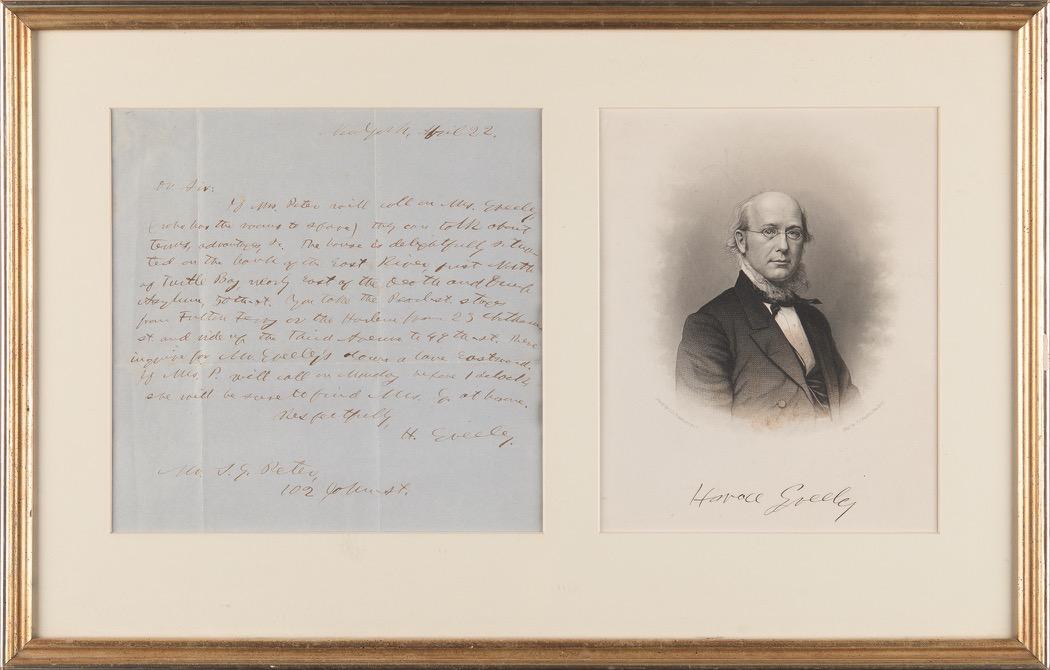 New York, April 22.
Dr Sir:
If Mrs. Peter will call on Mrs. Greeley
(who has the rooms to spare) they can talk about
terms, advantages, &c. The house is delightfully situa-
ted on the bank of the East River, just North
of Turtle Bay nearly East of the Deaf and Dumb
Asylum, 50th st. You take the Pearl st. stages
from Fulton Ferry or the Harlem from 23 Chatham
st. and ride up the Third Avenue to 49th st. there
inquire for Mr. Greeley's down a lane Eastward.
If Mrs. P. will call on Monday before 1 o'clock,
she will be sure to find Mrs. G. at home.
Respectfully,
H. Greeley.
Mr. S. G. Peter,
102 John st.
Horace Greeley